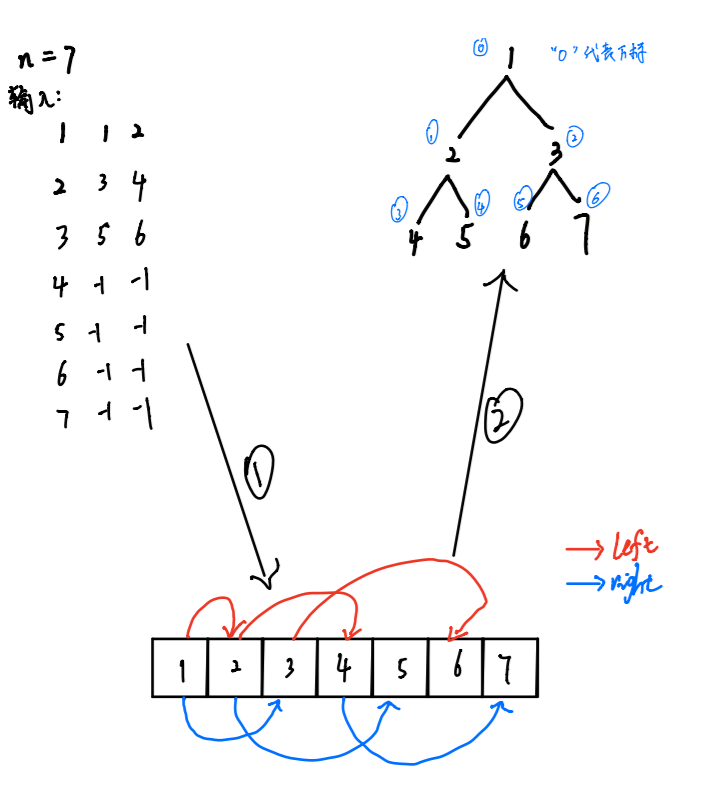 n = 7
输入:
1 1 2
2 3 4
3 5 6
4 -1 -1
5 -1 -1
6 -1 -1
7 -1 -1
⓪ 1 "0"代表下标
① 2 3 ②
③ ④ ⑤ ⑥
4 5 6 7
①
②
left
right
1 2 3 4 5 6 7